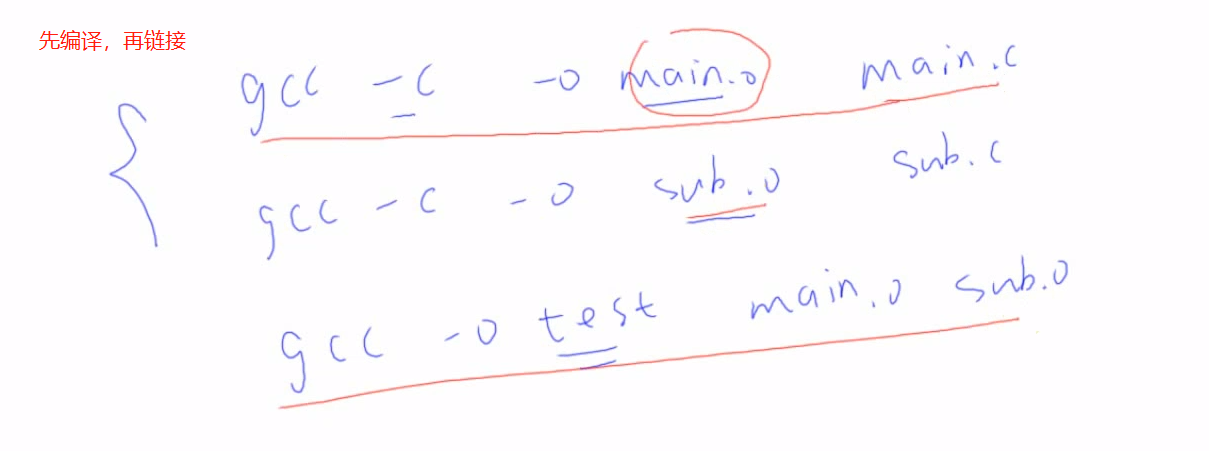 先编译，再链接
gcc -c -o main.o main.c
gcc -c -o sub.o sub.c
gcc -o test main.o sub.o